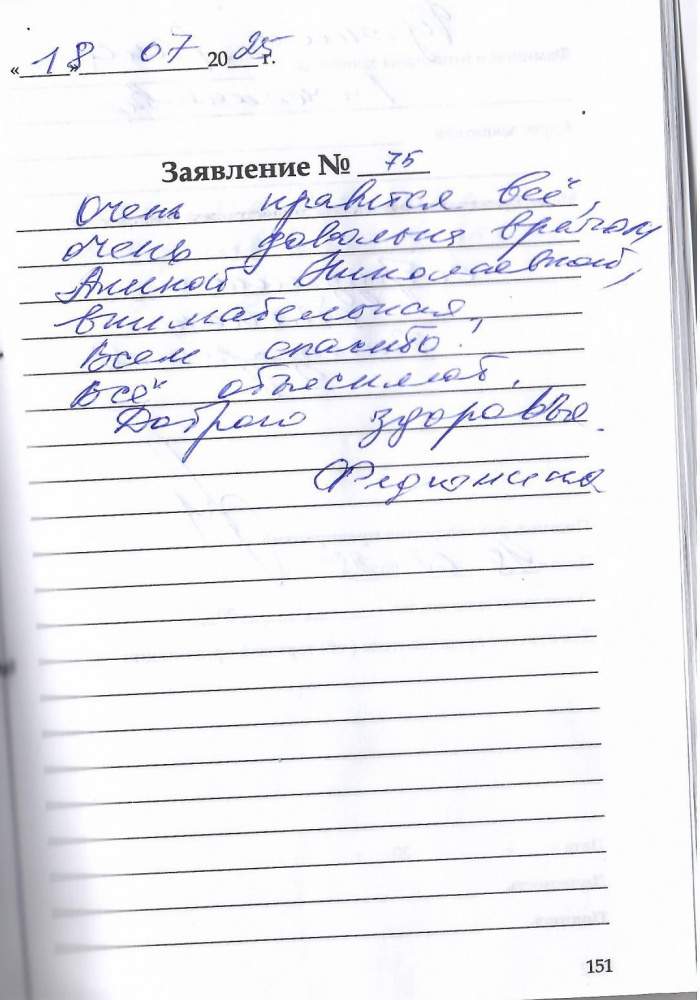 «18» 07 2025 г.
Заявление № 75
Очень нравится всё,
очень довольна врачом
Алиной Николаевной,
внимательная,
Всем спасибо!
Всё объяснила.
Доброго здоровья.
151